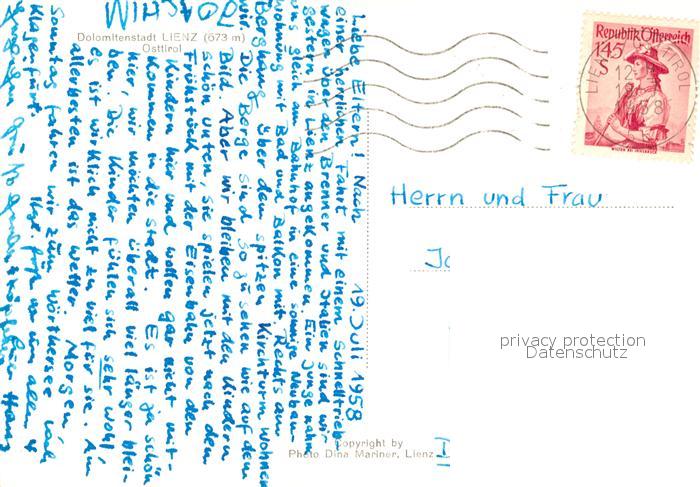 MIHCAOL
Dolomitenstadt LIENZ (673 m)
Osttirol
Republik Österreich
1.45
S
LIENZ OSTTIROL
WILTEN BEI INNSBRUCK
19. Juli 1958
Liebe Eltern! Nach
einer herrlichen Fahrt mit einem Schnelltrieb-
wagen über den Brenner und Italien sind wir
gestern in Lienz angekommen. Ein Junge nahm
uns gleich am Bahnhof in eine sonnige Neubau-
wohnung mit Bad und Balkon mit. Rechts am
Berghang über dem spitzen Kirchturm wohnen
wir. Die Berge sind so zu sehen wie auf dem
Bild. Aber wir bleiben mit den Kindern
schön unten, sie spielen jetzt nach dem
Frühstück mit der Eisenbahn von den
Kindern hier und wollen gar nicht mit-
kommen in die Stadt. Es ist ja schön
hier, wir möchten überall viel länger blei-
ben. Die Kinder fühlen sich sehr wohl,
es ist wirklich nicht zu viel für sie. Am
allerbesten ist das Wetter. Morgen,
Sonntag fahren wir zum Wörthersee nach
Klagenfurt.
Herrn und Frau
privacy protection
Datenschutz
Copyright by
Photo Dina Mariner, Lienz